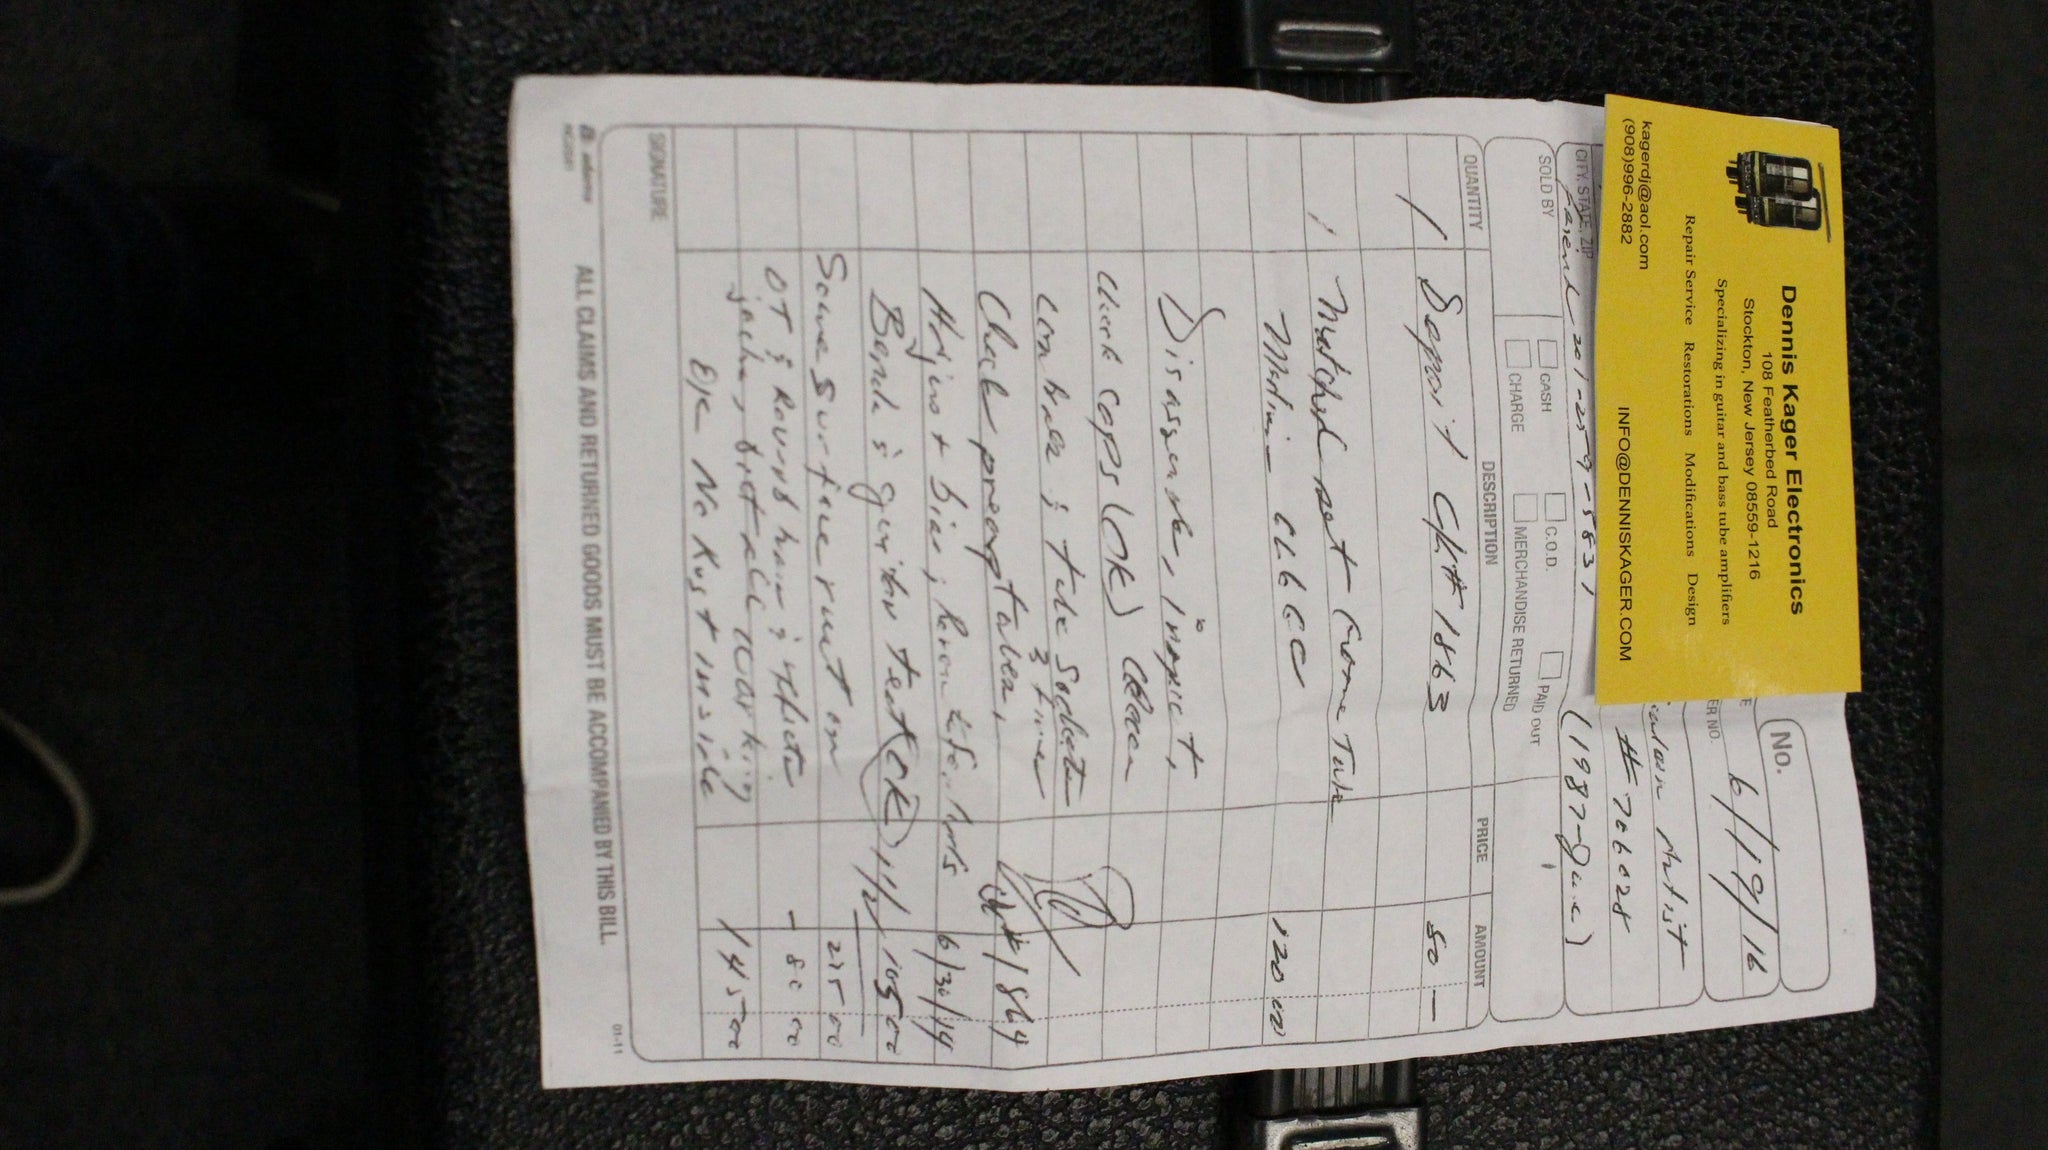 Dennis Kager Electronics
108 Featherbed Road
Stockton, New Jersey 08559-1216
Specializing in guitar and bass tube amplifiers
Repair Service Restorations Modifications Design
kagerdj@aol.com
(908)996-2882
INFO@DENNISKAGER.COM
No.
6/19/16
ER NO.
Artist
# 706028
CITY, STATE, ZIP
201-259-5831
(1987-June)
SOLD BY
CASH
C.O.D.
PAID OUT
CHARGE
MERCHANDISE RETURNED
QUANTITY
DESCRIPTION
PRICE
AMOUNT
1 Deposit Ck# 1863 50 —
1 Matched set Groove Tube
6L6GC 120 00
Disassemble, inspect,
Check caps (OK) Clean
controls & tube sockets
3 times
Check preamp tubes,
Ck# 1864
Adjust bias,
6/30/14
Bench & guitar test (OK) 105 00
Some surface rust on 225 00
OT & Reverb - 80 00
jacks, but all working 145 00
OK No Rust inside
SIGNATURE
adams
ALL CLAIMS AND RETURNED GOODS MUST BE ACCOMPANIED BY THIS BILL.
01-11